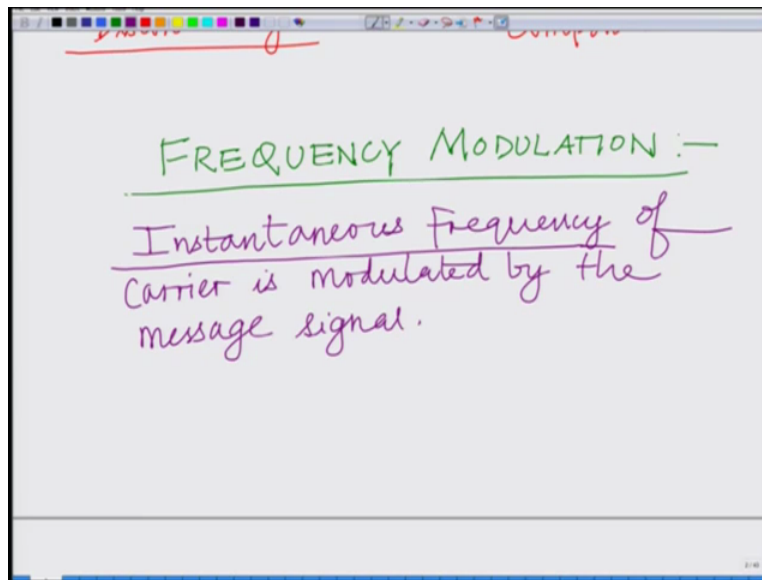 FREQUENCY MODULATION :-
Instantaneous Frequency of
Carrier is modulated by the
message signal.